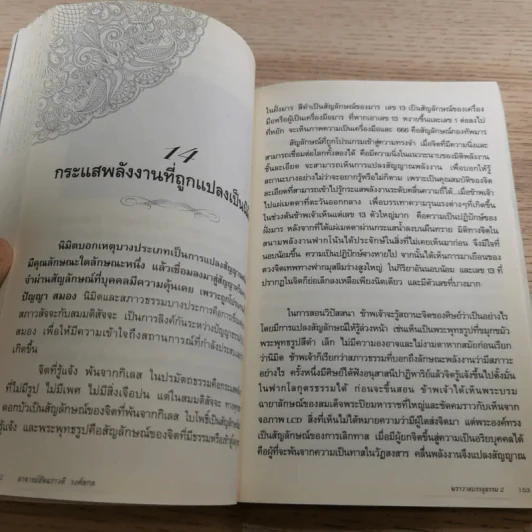 14
กระแสพลังงานที่ถูกแปลงเป็น
นิมิตบอกเหตุบางประเภทเป็นการแปลงสัญญาณ
มีคุณลักษณะใดลักษณะหนึ่ง แล้วเชื่อมลงมาสู่สัญญา
จำผ่านสัญลักษณ์ที่บุคคลมีความคุ้นเคย เพราะถูกโปรแกรม
ปัญญา สมอง นิมิตและสภาวธรรมบางประการคือการเชื่อม
สภาวสัจจะกับสมมติสัจจะ เป็นการลิงค์กันระหว่างปัญญาธรรม
สมอง เพื่อให้มีความเข้าใจถึงสถานการณ์ที่กำลังประสบ
เกิดขึ้น
จิตที่รู้แจ้ง พ้นจากกิเลส ในปรมัตถธรรมคือกระแส
ที่ไม่มีรูป ไม่มีเพศ ไม่มีสิ่งเจือปน แต่ในสมมติสัจจะ ทางพุทธ
ดอกบัวเป็นสัญลักษณ์ของจิตที่พ้นจากกิเลส ใบโพธิ์เป็นสัญลักษณ์
รู้แจ้ง และพระพุทธรูปคือสัญลักษณ์ของจิตที่มีธรรมหรือเข้าสู่
อาจารย์อัจฉราวดี วงศ์สกล
ในฝั่งมาร สีดำเป็นสัญลักษณ์ของมาร เลข 13 เป็นสัญลักษณ์ของเครื่อง
มือหรือผู้เป็นเครื่องมือมาร ที่หากเอาเลข 13 หงายขึ้นและเลข 1 ต่อลงไป
ที่หยัก จะเห็นภาพความเป็นเครื่องมือและ 666 คือสัญลักษณ์กองทัพมาร
สัญลักษณ์ที่ถูกโปรแกรมเข้าสู่ความทรงจำ เมื่อจิตที่มีความนิ่งและ
สามารถเชื่อมต่อโลกทั้งสองได้ คือมีความนิ่งในแนวระนาบของมิติพลังงาน
ชั้นละเอียด จะสามารถเห็นการแปลงสัญญาณพลังงาน เพื่อบอกให้รู้
สถานะบางอย่างไม่ว่าจะอยากรู้หรือไม่ก็ตาม เพราะเป็นคุณสมบัติของจิต
ละเอียดที่สามารถเข้าไปรู้กระแสพลังงานระดับคลื่นความถี่ได้...เมื่อข้าพเจ้า
ไปแผ่เมตตาที่ตะวันออกกลาง เพื่อบรรเทาความรุนแรงต่างๆที่เกิดขึ้น
ในช่วงต้นข้าพเจ้าเห็นแต่เลข 13 ตัวใหญ่มาก คือความเป็นปฏิปักษ์ของ
ฝั่งมาร หลังจากที่ได้แผ่เมตตาผ่านกระแสน้ำลงบนผืนทราย มิติทางจิตใน
สนามพลังงานฟากโน้นได้ประจักษ์ในสิ่งที่ไม่เคยเห็นมาก่อน จึงมีใจที่
นอบน้อมขึ้น ความเป็นปฏิปักษ์จางหายไป จากนั้นได้เห็นการมาเยือนของ
ดวงจิตเทพทางฟากมุสลิมร่างสูงใหญ่ ในกิริยาอันนอบน้อม และเลข 13 ที่
ปรากฏในจิตก็ย่อเล็กลงเหลือเพียงนิดเดียว และมีตัวเลขที่บางมาก
ในการสอนวิปัสสนา ข้าพเจ้าจะรู้สถานะจิตของศิษย์ว่าเป็นอย่างไร
โดยมีการแปลงสัญลักษณ์ให้รู้ล่วงหน้า เช่นเห็นเป็นพระพุทธรูปที่ขมุกขมัว
พระพุทธรูปสีดำ เล็ก ไม่มีความองอาจและไม่งามตาหากสมัยก่อนเรียก
ว่านิมิต ข้าพเจ้าก็เรียกว่าสภาวธรรมที่บอกถึงลักษณะพลังงานว่ามีสภาวะ
อย่างไร ครั้งหนึ่งมีศิษย์ได้ฟังอนุสาสนีปาฏิหาริย์แล้วจิตรู้แจ้งขึ้นไปตั้งมั่น
ในฟากโลกุตรธรรมได้ ก่อนจะขึ้นสอน ข้าพเจ้าได้เห็นพระบรม
ฉายาลักษณ์ของสมเด็จพระปิยมหาราชที่ใหญ่และชัดคมราวกับเห็นจาก
จอภาพ LCD สิ่งที่เห็นไม่ได้หมายความว่ามีผู้ใดส่งจิตมา แต่พระองค์ทรง
เป็นสัญลักษณ์ของการเลิกทาส เมื่อมีผู้ยกจิตขึ้นสู่ความเป็นอริยบุคคลได้
คือผู้ที่จะพ้นจากความเป็นทาสในวัฏสงสาร คลื่นพลังงานจึงแปลงสัญญาณ
ฆราวาสบรรลุธรรม 2 153